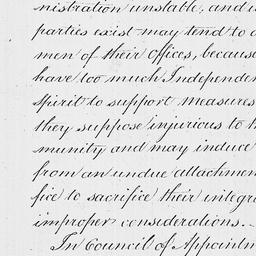 nistration unstable, and
parties exist may tend to
men of their Offices, because
have too much Independen
spirit to support measures
they suppose injurious to t
munity and may induce
from an undue attachmen
fice to sacrifice their integr
improper considerations.
In Council of Appointm